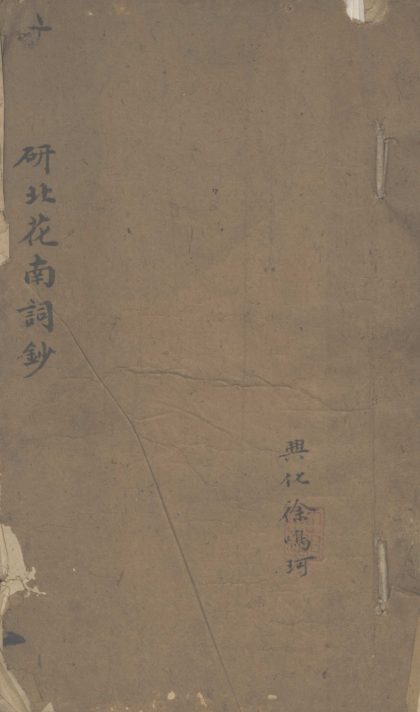 研北花南詞鈔
興化徐鳴珂